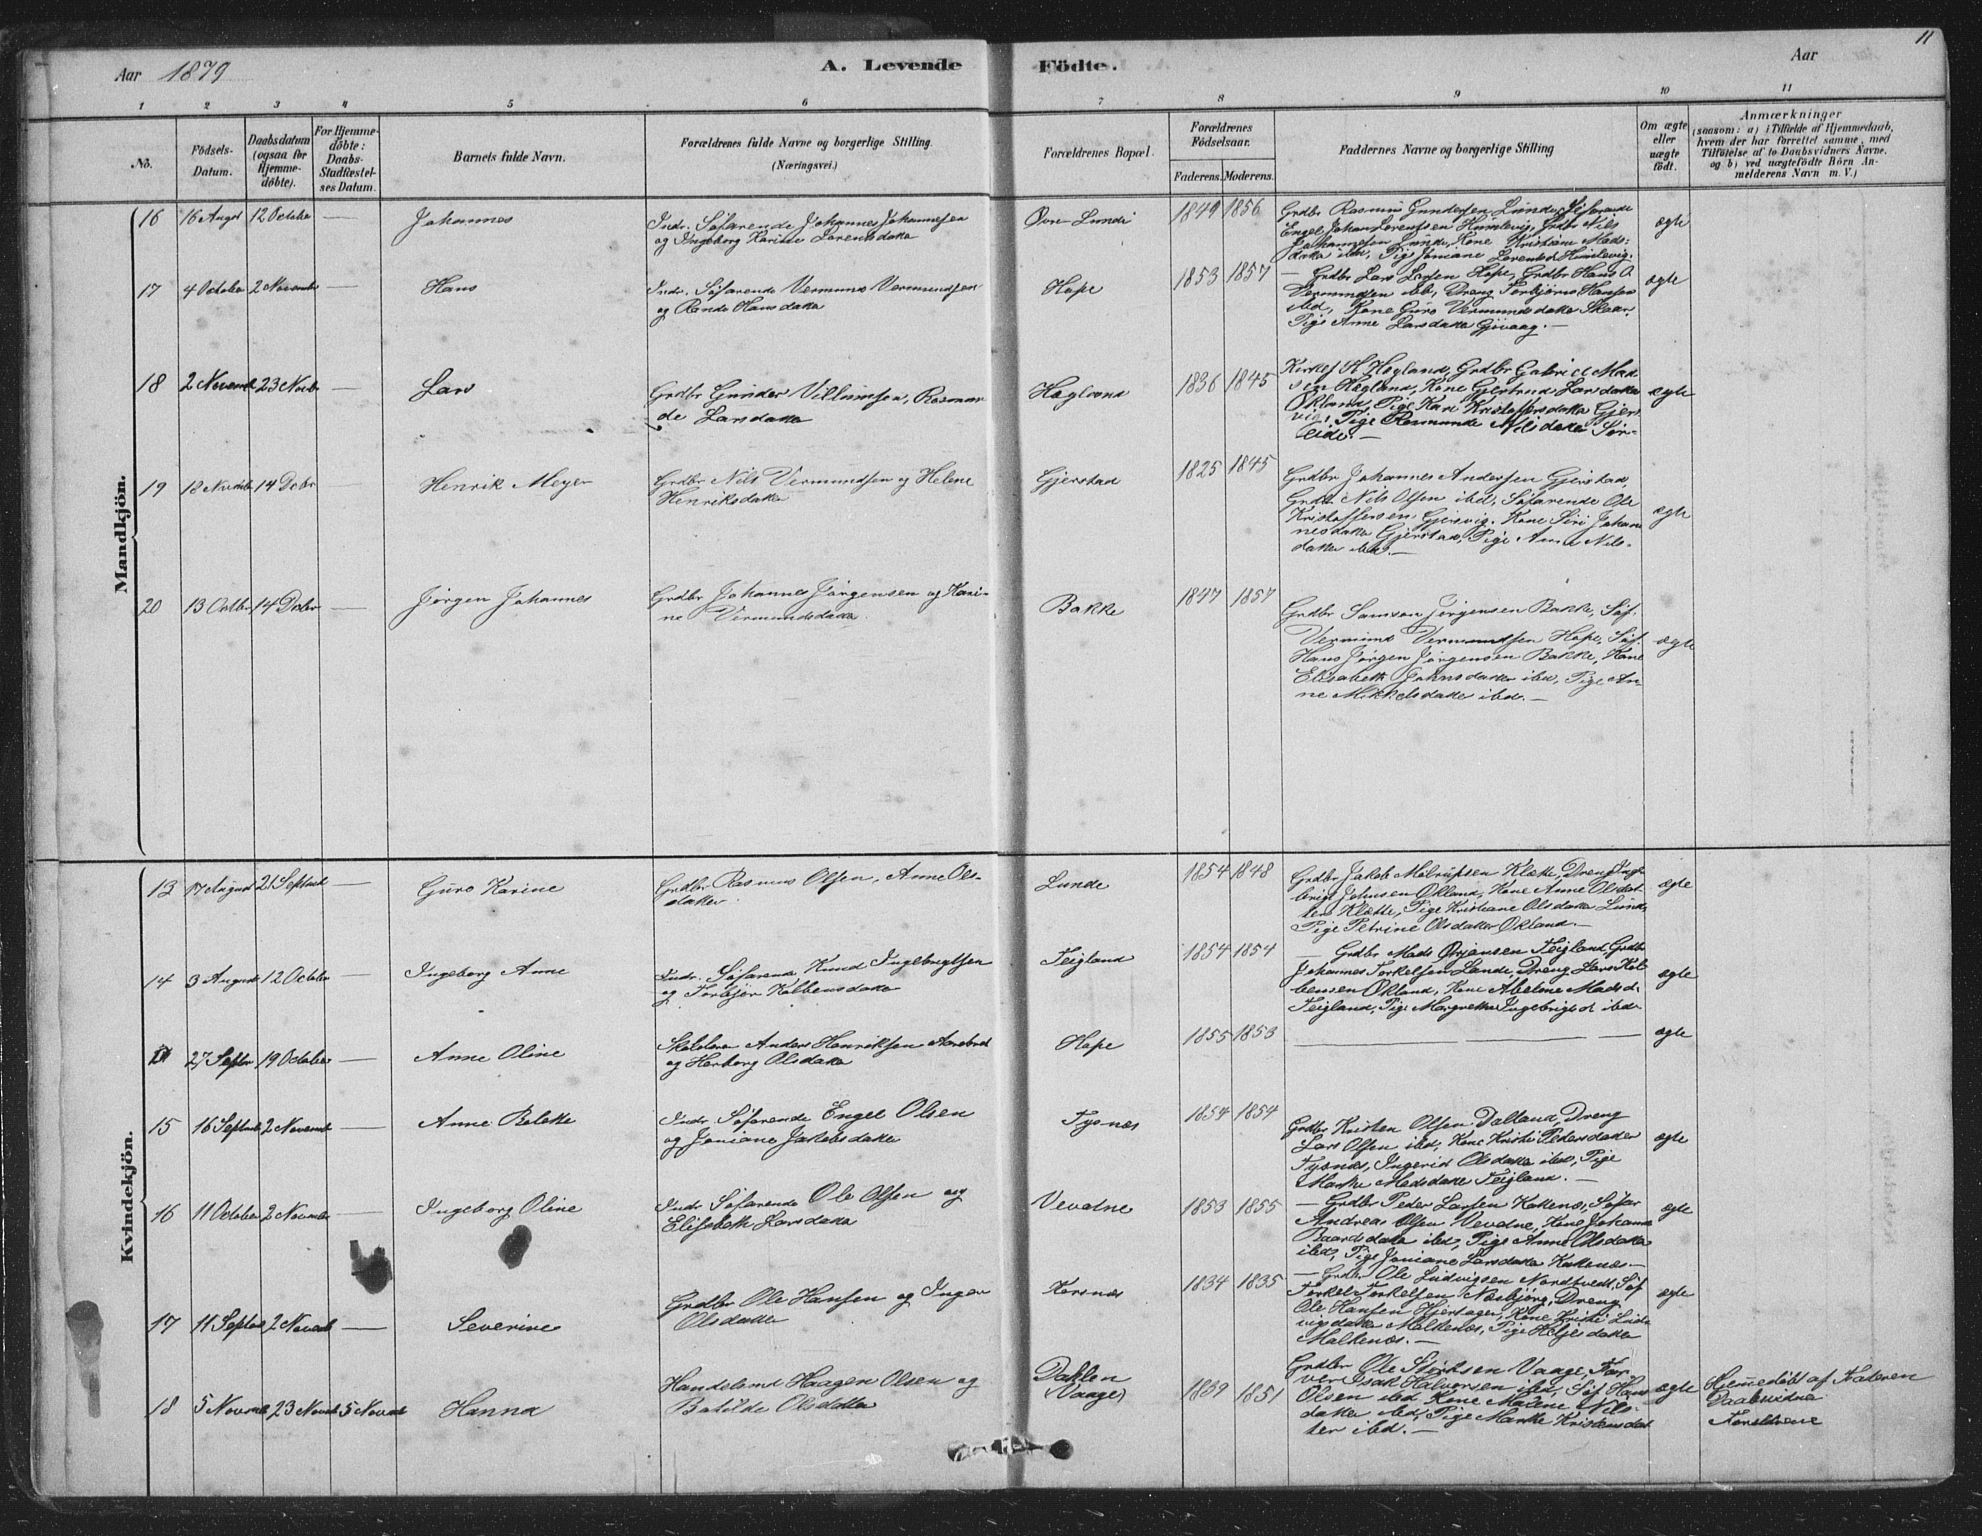 Aar 1879
A. Levende Födte.
Aar
11
1 2 3 4 5 6 7 8 9 10 11
No.
Födsels-
Datum.
Daabsdatum
(ogsaa for
Hjemme-
döbte).
For Hjemme-
döbte:
Daabs-
Stadfæstel-
ses Datum.
Barnets fulde Navn.
Forældrenes fulde Navne og borgerlige Stilling.
(Næringsvei.)
Forældrenes Bopæl.
Forældrenes
Födselsaar.
Faderens. Moderens.
Faddernes Navne og borgerlige Stilling
Om ægte
eller
uægte
födt.
Anmærkninger
(saasom: a) i Tilfælde af Hjemmedaab,
hvem der har forrettet samme, med
Tilföielse af to Daabsvidners Navne,
og b) ved uægtefödte Börn An-
melderens Navn m. V.)
Mandkjön.
16 16 Augst 12 Octobr — Johannes
Indr. Søfarende Johannes Johannesen
og Ingeborg Karine Lorensdatter
Øvre Lunde 1849 1856
Grdbr Rasmus Gundersen Lunde, Søfarende
Engel Johan Lorentsen Humlevig, Grdbr Nils
Johannesen Lunde, Kone Kristiane Mads-
datter ibd, Pige Joniane Lorensd Humlevig.
ægte
17 4 October 2 Novembr — Hans
Indr. Søfarende Vermund Vermundsen
og Rande Hansdatter
Hope 1853 1857
— Grdbr Lars Larsen Hope, Grdbr Hans O
Vermundsen ibd, Dreng Torbjørn Hansen
ibd, Kone Guro Vermundsdatter Skaar,
Pige Anne Larsdatter Gjøvaag. —
ægte
18 2 Novemb 23 Novbr — Lars
Grdbr Gunder Villumsen, Rasmun-
de Larsdatter
Høglund 1836 1845
Kirkes. H. Høgland, Grdbr Gabriel Mad-
sen Høgland, Kone Gjertrud Larsdatter
Økland, Pige Kari Kristoffersdatter Gjers-
vig, Pige Rasmunde Nilsdatter Sør-
eide. —
ægte
19 18 Novemb 14 Debr — Henrik Meyer
Grdbr Nils Vermundsen og Helene
Henriksdatter
Gjerstad 1825 1845
Grdbr Johannes Andersen Gjerstad,
Grdbr Nils Olsen ibd, Søfarende Ole
Kristoffersen Gjersvig, Kone Siri Johan-
nesdatter Gjerstad, Pige Anna Nils-
datter ibd. —
ægte
20 13 Octbr 14 Debr — Jørgen Johannes
Grdbr Johannes Jørgensen og Kari-
ne Vermundsdatter.
Bakke 1847 1857
Grdbr Samson Jørgensen Bakke, Søf.
Vermund Vermundsen Hope, Søf.
Hans Jørgen Jørgensen Bakke, Kone
Elisabeth Johnsdatter ibd, Pige An-
ne Mikkelsdatter ibd. —
ægte
Kvindekjön.
13 17 August 21 Septemb — Guro Karine
Grdbr Rasmus Olsen, Anne Ols-
datter.
Lunde 1854 1848
Grdbr Jakob Klette, Dreng Inge-
brigt Johnsen Økland, Kone Anne Olsdat-
ter Klette, Pige Kristiane Olsdatter Lunde,
Pige Petrine Olsdatter Økland. —
ægte
14 3 August 12 October — Ingeborg Anne
Indr. Søfarende Knud Ingebrigtsen
og Torbjør Kolbensdatter
Teigland 1854 1854
— Grdbr Mads Ørjansen Teigland, Grdbr
Johannes Torkelsen Lande, Dreng Lars Kol-
bensen Økland, Kone Abelone Madsd.
Teigland, Pige Margrethe Ingebrigtsd ibd
ægte
27 Septbr 19 October Anne Oline
Skolelærer Anders Henriksen
og Herborg Olsdatter
Hope 1855 1853
— — —
ægte
15 16 Septemb 2 Novemb — Anne Bolette
Indr. Søfarende Engel Olsen
og Joniane Jakobsdatter
Tysnæs 1854 1854
Grdbr Kristen Olsen Dalland, Dreng
Lars Olsen ibd, Kone Kristi Pedersdatter
Tysnæs, Ingerid Olsdatter ibd, Pige
Marthe Madsdatter Teigland. —
ægte
16 11 October 2 Novemb — Ingeborg Oline
Indr Søfarende Ole Olsen og
Elisabeth Larsdatter
Vevatne 1853 1855
— Grdbr Peder Larsen Kaltenæs, Søfar
Andreas Olsen Vevatne, Kone Johanna
Baardsdatter ibd, Pige Anne Olsdatter
ibd, Pige Joniane Larsdatter Kaltenæs —
ægte
17 11 Septbr 2 Novemb — Severine
Grdbr Ole Hansen og Inger
Olsdatter
Korsnæs 1834 1835
— Grdbr Ole Ludvigsen Nordtvedt, Søf
Torkel Torkelsen Næsbjørg, Dreng
Ole Hansen Hjertager, Kone Kristi Lud-
vigsdatter Malkenæs, Pige Heljesdatter
Malkenæs. —
ægte
18 5 Novemb 23 Novemb 5 Novemb Hanna
Handelsmd Haagen Olsen og
Batilde Olsdatter
Dahlen
(Vaage)
1839 1851
Grdbr Ole Størksen Vaage, Far-
ver Isak Halvorsen ibd, Søf Hans
Olsen ibd, Kone Malene Nils-
datter ibd, Pige Marthe Kristensdat-
ter ibd. —
ægte
Hjemmedøbt af Faderen
Daabsvidne
Forældrene